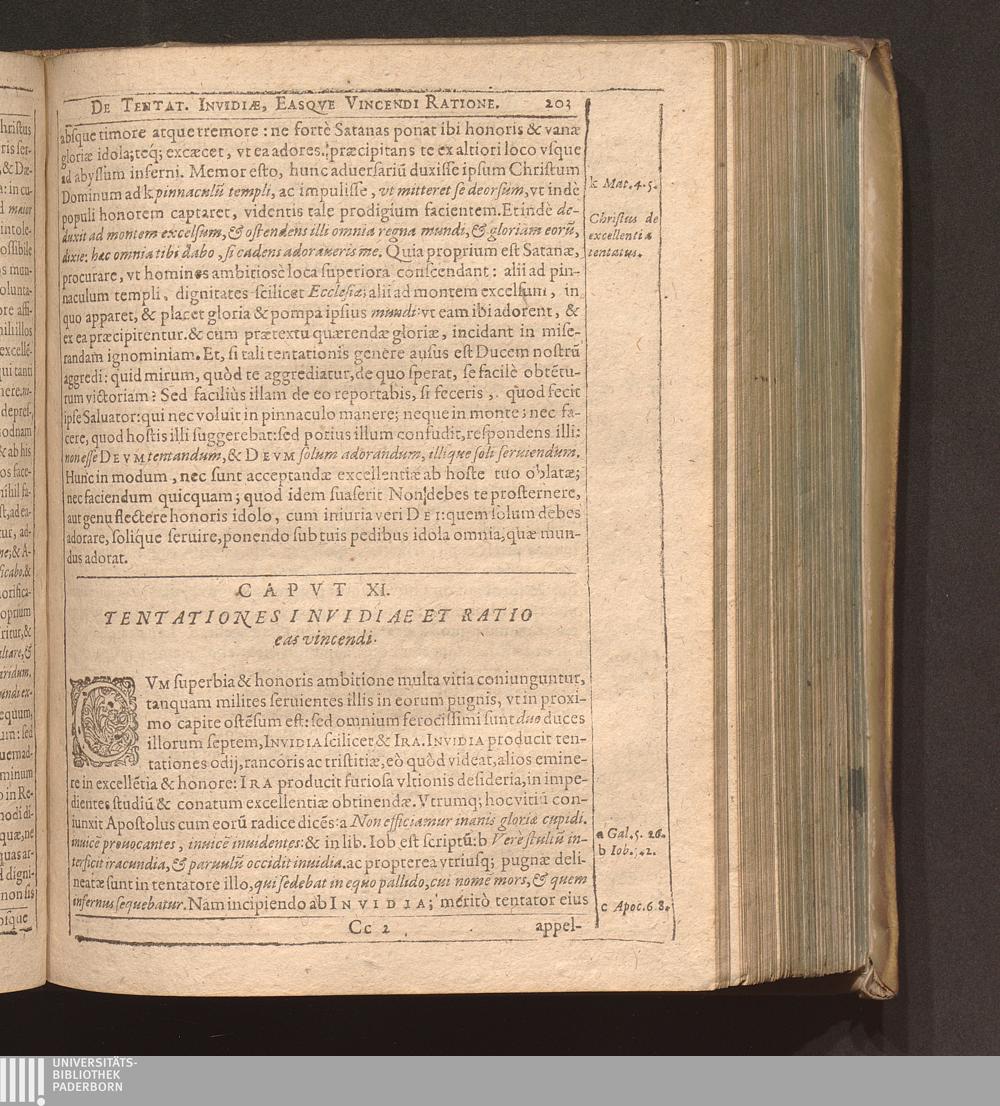 DE TENTAT. INVIDIÆ, EASQVE VINCENDI RATIONE. 203
absque timore atque tremore : ne fortè Satanas ponat ibi honoris & vanæ
gloriæ idola; teq; excæcet, vt ea adores. præcipitans te ex altiori loco vsque
ad abyssum inferni. Memor esto, hunc aduersariū duxisse ipsum Christum
Dominum ad k pinnaculū templi, ac impulisse, vt mitteret se deorsum, vt indè
populi honorem captaret, videntis tale prodigium facientem. Et indè de-
duxit ad montem excelsum, & ostendens illi omnia regna mundi, & gloriam eorū,
dixit: hæc omnia tibi dabo, si cadens adoraueris me. Quia proprium est Satanæ,
procurare, vt homines ambitiosè loca superiora conscendant : alii ad pin-
naculum templi, dignitates scilicet Ecclesiæ; alii ad montem excelsum, in
quo apparet, & placet gloria & pompa ipsius mundi: vt eam ibi adorent, &
ex ea præcipitentur. & cum prætextu quærendæ gloriæ, incidant in mise-
randam ignominiam. Et, si tali tentationis genere ausus est Ducem nostrū
aggredi: quid mirum, quòd te aggrediatur, de quo sperat, se facilè obtētu-
rum victoriam? Sed faciliùs illam de eo reportabis, si feceris, quod fecit
ipse Saluator: qui nec voluit in pinnaculo manere; neque in monte; nec fa-
cere, quod hostis illi suggerebat: sed potius illum confudit, respondens illi:
non esse DEVM tentandum, & DEVM solum adorandum, illique soli seruiendum.
Hunc in modum, nec sunt acceptandæ excellentiæ ab hoste tuo oblatæ;
nec faciendum quicquam; quod idem suaserit Non debes te prosternere,
aut genu flectere honoris idolo, cum iniuria veri DEI: quem solum debes
adorare, solique seruire, ponendo sub tuis pedibus idola omnia, quæ mun-
dus adorat.
k Mat. 4. 5.
Christus de
excellentia
tentatus.
CAPVT XI.
TENTATIONES INVIDIAE ET RATIO
eas vincendi.
CVM superbia & honoris ambitione multa vitia coniunguntur,
tanquam milites seruientes illis in eorum pugnis, vt in proxi-
mo capite ostēsum est: sed omnium ferocissimi sunt duo duces
illorum septem, INVIDIA scilicet & IRA. INVIDIA producit ten-
tationes odij, rancoris ac tristitiæ, eò quòd videat, alios emine-
re in excellētia & honore: IRA producit furiosa vltionis desideria, in impe-
dientes studiū & conatum excellentiæ obtinendæ. Vtrumq; hoc vitiū con-
iunxit Apostolus cum eorū radice dicēs: a Non efficiamur inanis gloriæ cupidi.
inuicē prouocantes, inuicē inuidentes: & in lib. Iob est scriptū: b Verè stultū in-
terficit iracundia, & paruulū occidit inuidia. ac propterea vtriusq; pugnæ deli-
neatæ sunt in tentatore illo, qui sedebat in equo pallido, cui nomē mors, & quem
infernus sequebatur. Nam incipiendo ab INVIDIA; meritò tentator eius
a Gal. 5. 26.
b Iob. 2.
c Apoc. 6 8.
Cc 2 appel-
hristus
ris ser-
, & Dæ-
a: in cu-
d maior
intole-
ossibile
s mun-
olunta-
ore affi-
nihil illos
excellē-
qui tanti
depres-
odnam
& ab his
os face-
nihil fa-
st, ad ea-
tur, ad-
ficabo. &
orifica-
oprium
ritur, &
ltare, &
iridum,
undi ex-
equum,
um: sed
uemad-
minum
o in Re-
nodi di-
quæ, ne
quas ar-
d digni-
non sis
bsque
UNIVERSITÄTS-
BIBLIOTHEK
PADERBORN